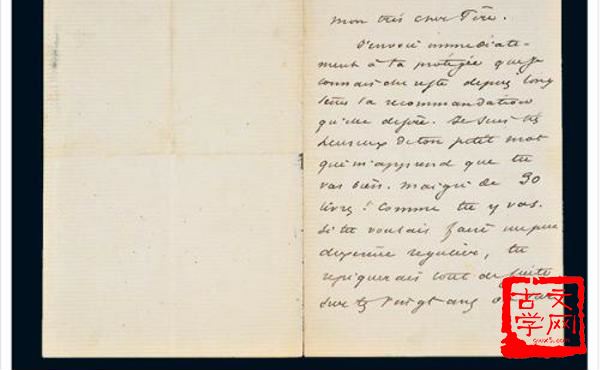 mon très cher Père.
J'envoie immediate-
ment à ta protégée que je
connais du reste depuis long
temps la recommandation
qu'elle désire. Je suis très
heureux de ton petit mot
qui m'apprend que tu
vas bien. maigri de 30
livres! Comme tu y vas.
Si tu voulais faire un peu
d'exercice regulier, tu
repiquerais tout de suite
sur tes vingt ans
古文
学网
gwx5.com